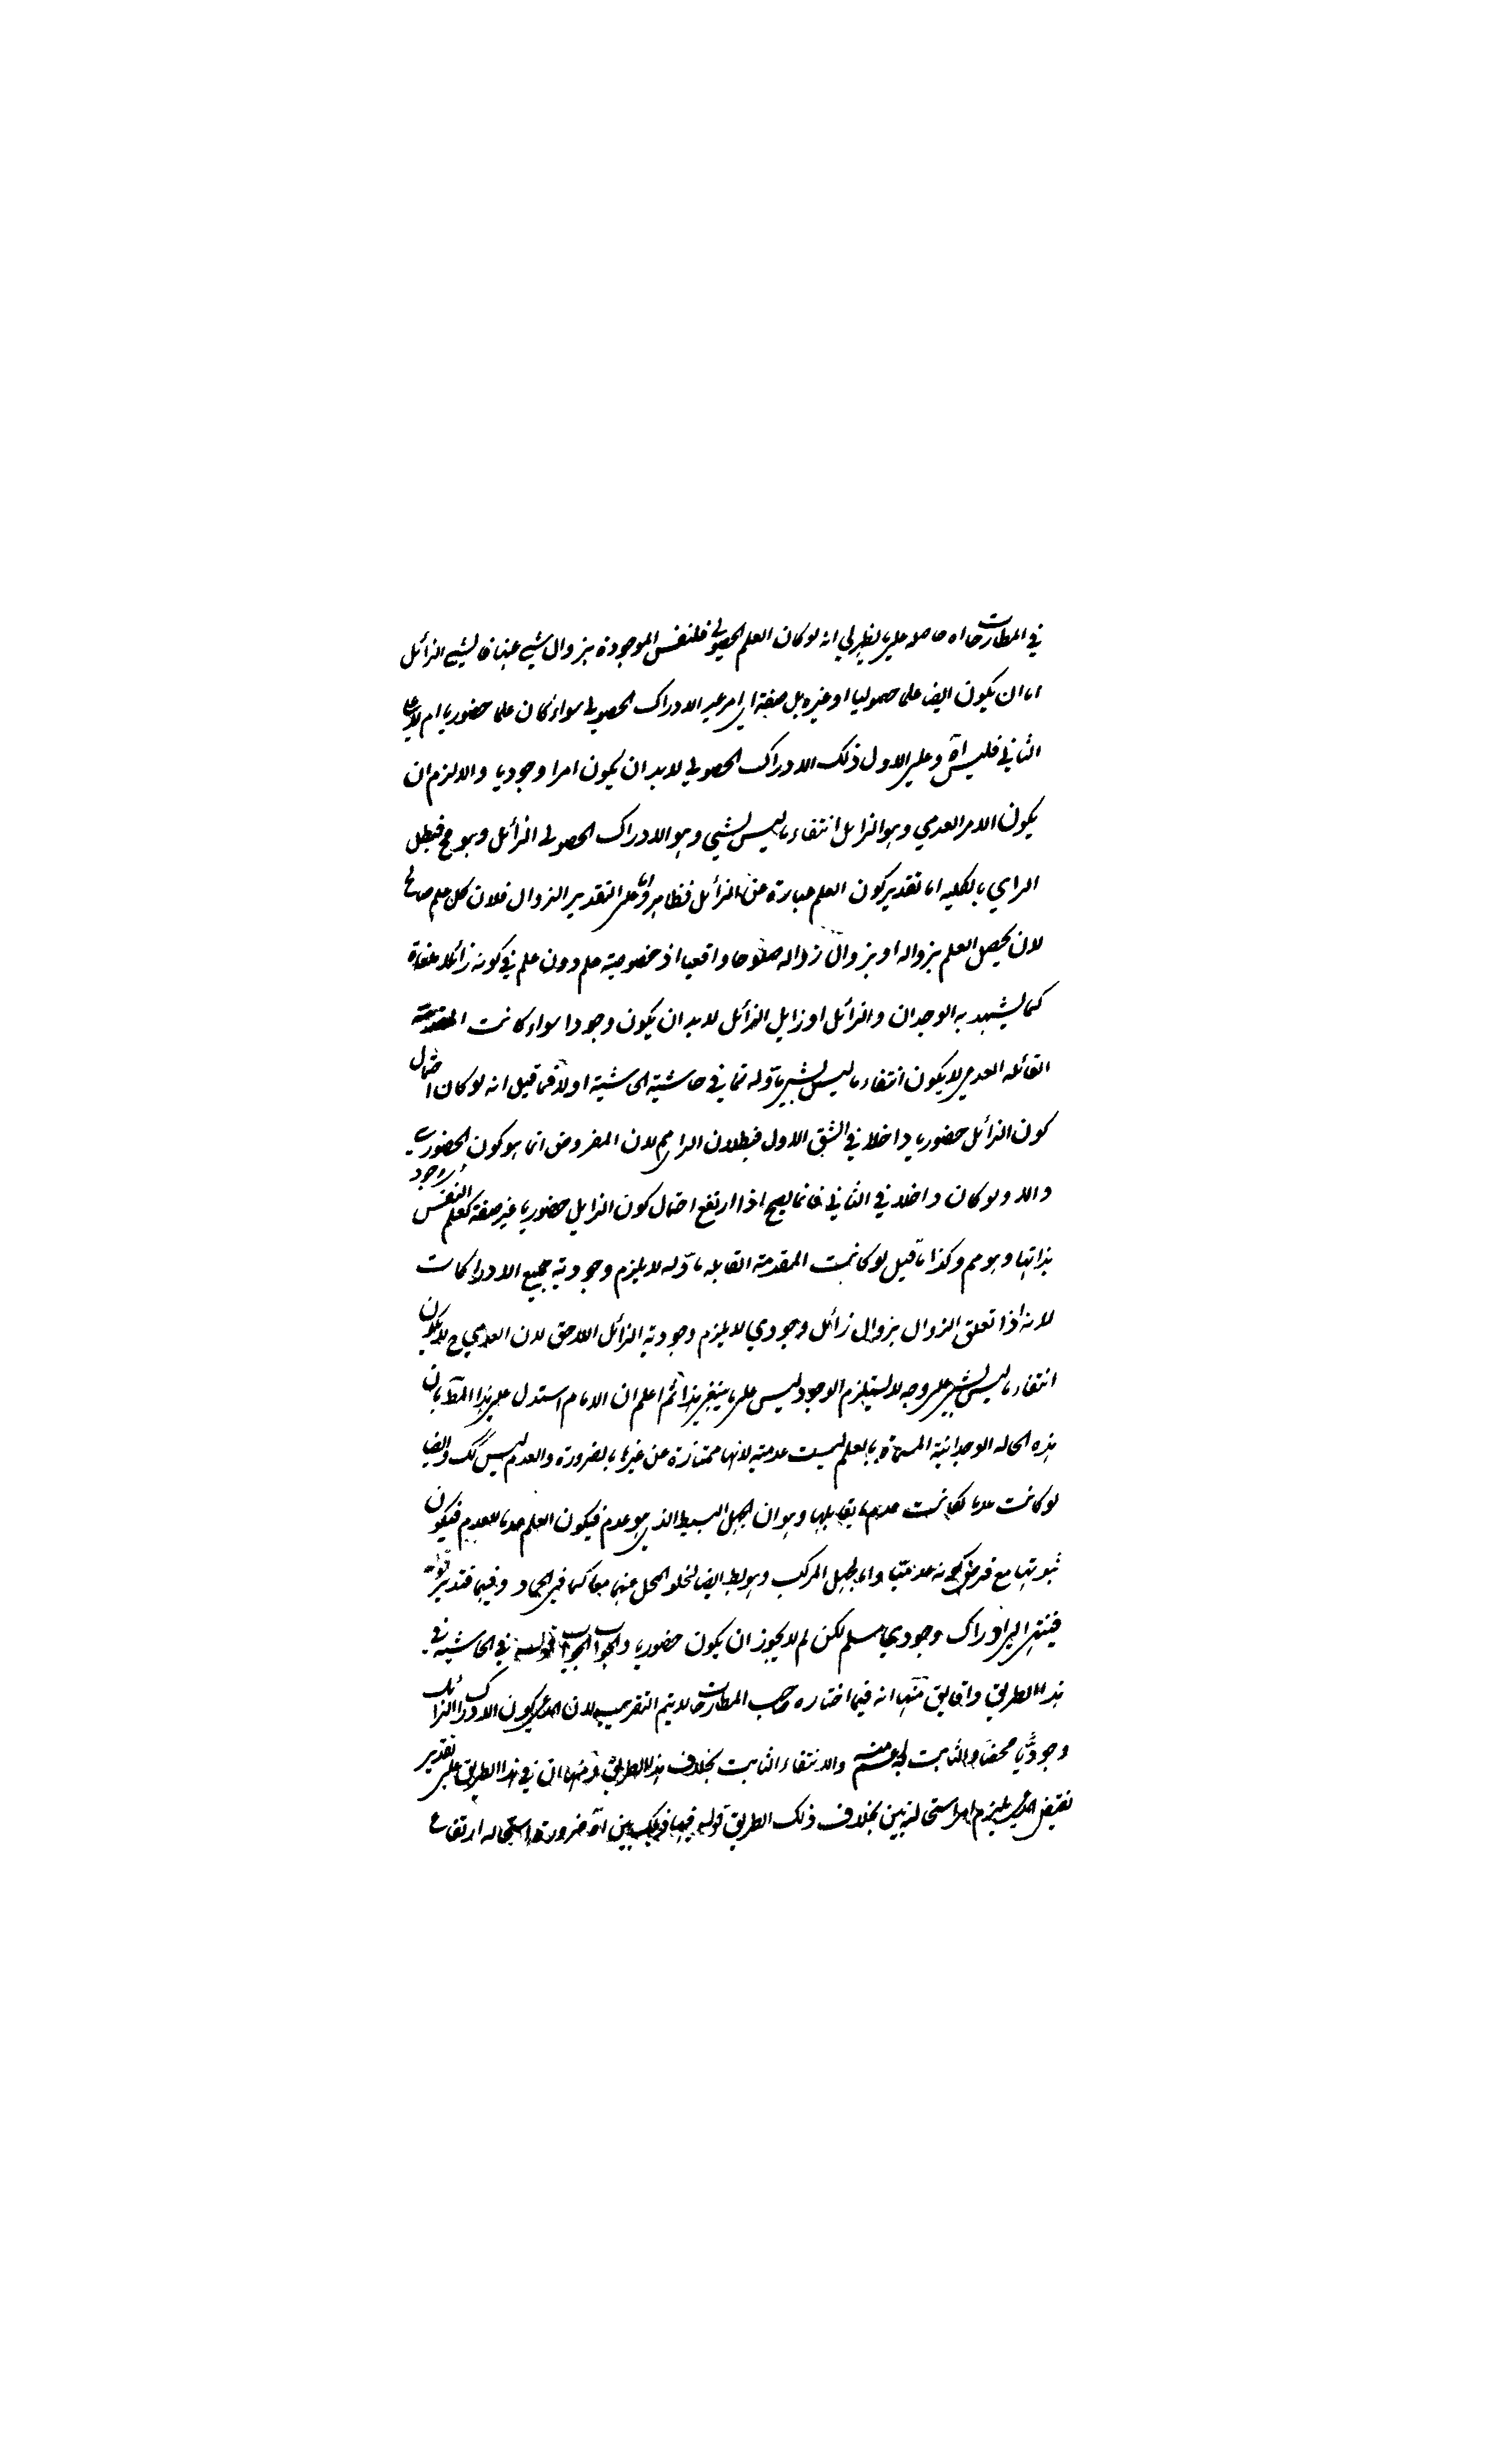 في المطارحات اه حاصله على ما يظهر لي انه لو كان العلم الحصولي للنفس الموجودة بزوال شيء عنها فالشيء الزائل
اما ان يكون ايضا علما حصوليا او غيره بل صفة اي امر غير الادراك الحصولي سواء كان علما حضوريا ام لا وعلى
الثاني فليس اه وعلى الاول ذلك الادراك الحصولي لابد ان يكون امرا وجوديا والا لزم ان
يكون الامر العدمي وهو الزايل انتفاء ما ليس بشيء وهو الادراك الحصولي الزائل وهو مح فبطل
الراي بالكليه اما تقدير كون العلم عبارة عن الزائل فظاهر واما على التقدير الزوال فلان كل علم صالح
لان يحصل العلم بزواله او بزوال زواله صلوحا واقعيا اذ خصوصية علم دون علم في كونه زائلا ملغاة
كما يشهد به الوجدان والزائل او زايل الزائل لابد ان يكون وجودا سواء كانت المقدمة
القائله العدمي لا يكون انتفاء ما ليس بشيء ماوله كما في حاشية الحاشية اولا فما قيل انه لو كان احتمال
كون الزائل حضوريا داخلا في الشق الاول فبطلان الراي مم لان المفروض انما هو كون الحضوري
والا ولو كان داخلا في الثاني فانما يصح اذا ارتفع احتمال كون الزايل حضوريا غير صفة كعلم النفس
بذاتها وهو مم وكذا ما قيل لو كانت المقدمة القايله ماوله لا يلزم وجودية جميع الادراكات
لانه اذا تعلق الزوال بزوال زائل وجودي لا يلزم وجودية الزائل اللاحق لان العدمي ح لا يكون
انتفاء ما ليس بشيء على وجه لا يستلزم الوجود ليس على ما ينبغي هذا ثم اعلم ان الامام استدل على هذا المط بان
هذه الحاله الوجدانية المسماة بالعلم ليست عدمية لانها ممتازة عن غيرها بالضرورة والعدم ليس كك وايضا
لو كانت عدما لكانت عدم ما يقابلها وهو ان الجهل البسيط الذي هو عدم فيكون العلم عدما للعدم فيكون
ثبوتها مع فرض كونه عدميا واما الجهل المركب وهو بط ايضا لخلو المحل عنهما معا كما في الجماد وفيهما فتدبر قوله
فينتهي الى ادراك وجودي مسلم لكن لم لا يجوز ان يكون حضوريا والجواب الجواب قوله في الحاشية في
هذا الطريق دقايق منها انه فيما اختاره صاحب المطارحات لا يتم التقريب لان المدعى كون الادراك الزائل
وجوديا محضا والثابت به اعم منه والانتفاء الثابت بخلاف هذا الطريق ومنها ان في هذا الطريق على تقدير
نقيض المدعى يلزم امر استحالته بين بخلاف ذلك الطريق قوله فيها وذلك بين اه ضرورة استحاله ارتفاع